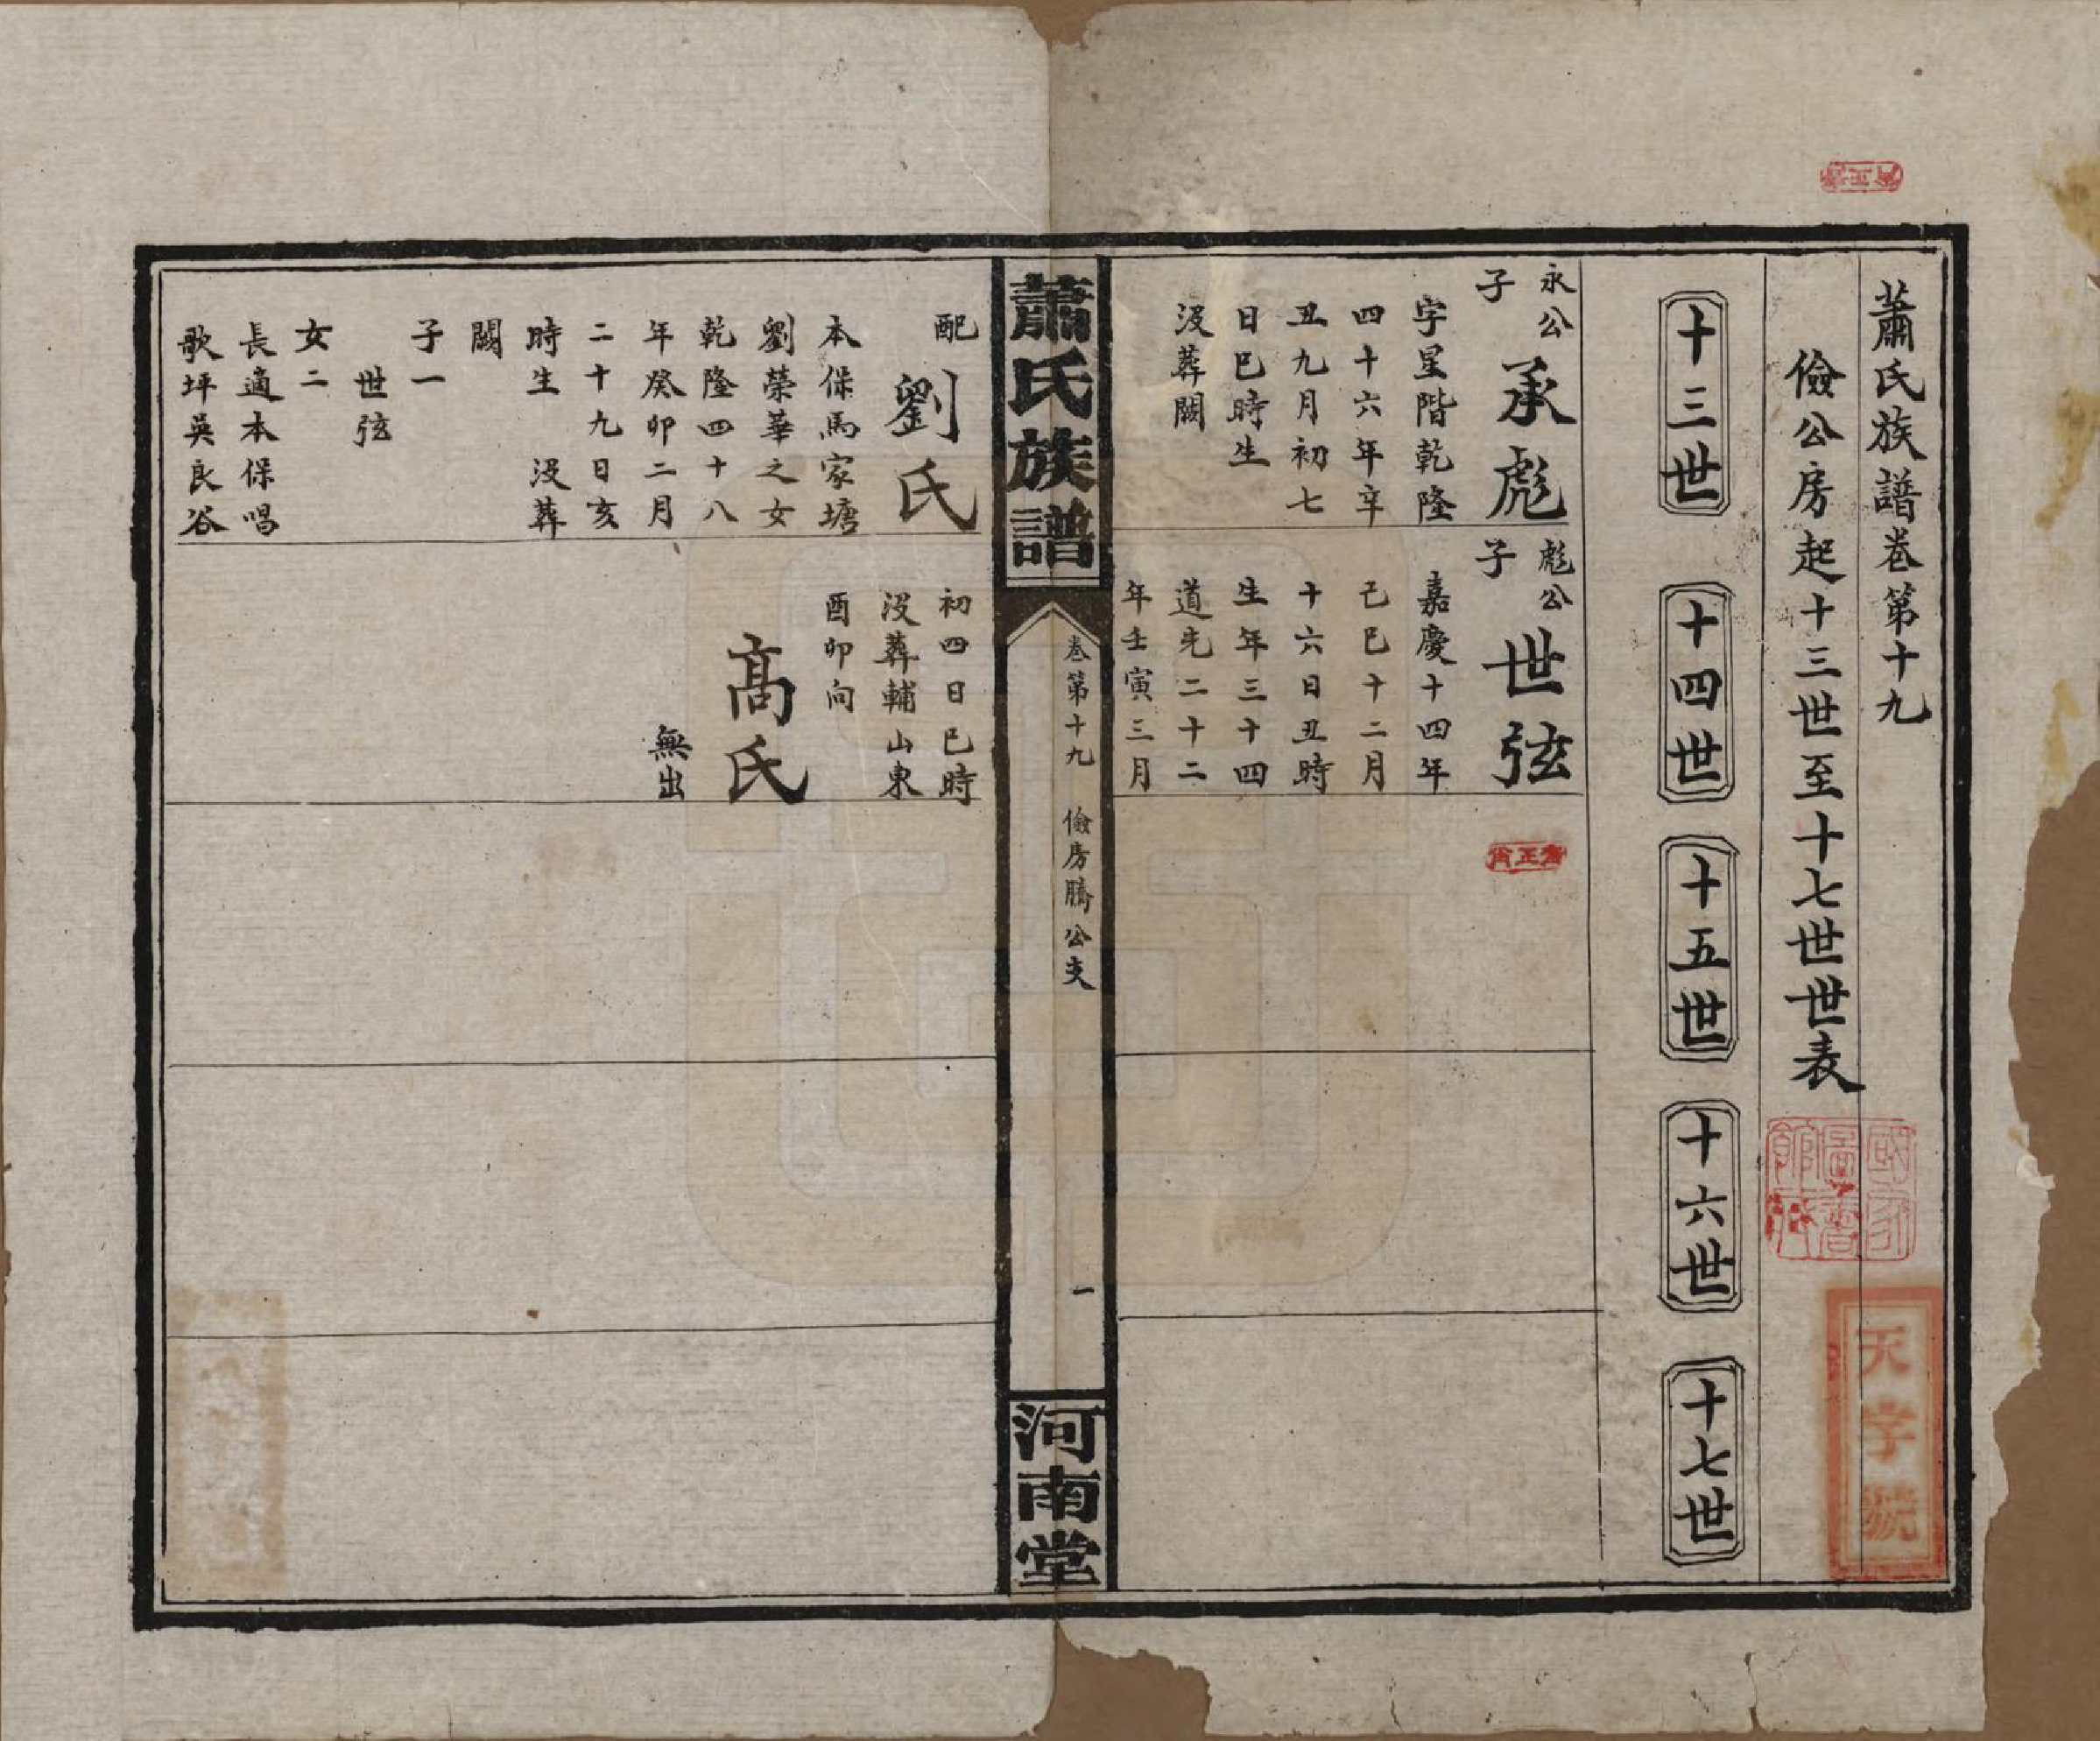 蕭氏族譜卷第十九
儉公房起十三世至十七世世表
十三世
十四世
十五世
十六世
十七世
永公
子
承彪
字星階乾隆
四十六年辛
丑九月初七
日巳時生
沒葬闕
彪公
子
世弦
嘉慶十四年
己巳十二月
十六日丑時
生年三十四
道光二十二
年壬寅三月
蕭氏族譜
卷第十九
儉房騰公支
一
河南堂
配
劉氏
本保馬家塘
劉榮華之女
乾隆四十八
年癸卯二月
二十九日亥
時生 沒葬
闕
子一
世弦
女二
長適本保唱
歌坪吳良谷
初四日巳時
沒葬輔山東
酉卯向
高氏
無出
天字號